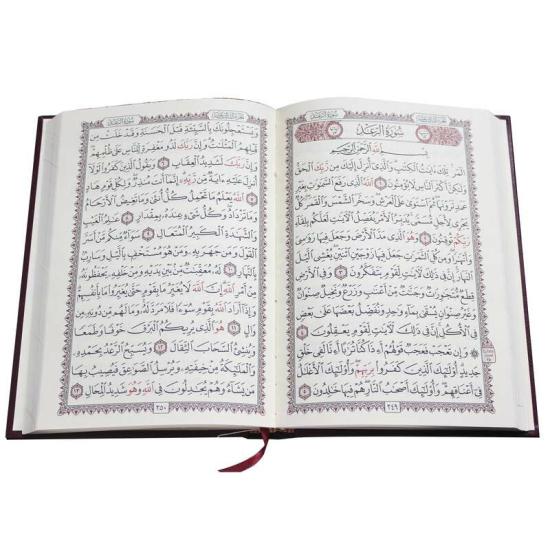 سُورَةُ الرَّعْدِ
بِسْمِ اللَّهِ الرَّحْمَٰنِ الرَّحِيمِ
الٓمٓر تِلْكَ ءَايَٰتُ الْكِتَٰبِ وَالَّذِىٓ أُنزِلَ إِلَيْكَ مِن رَّبِّكَ الْحَقُّ
وَلَٰكِنَّ أَكْثَرَ النَّاسِ لَا يُؤْمِنُونَ ١ اللَّهُ الَّذِى رَفَعَ السَّمَٰوَٰتِ بِغَيْرِ
عَمَدٍ تَرَوْنَهَا ثُمَّ اسْتَوَىٰ عَلَى الْعَرْشِ وَسَخَّرَ الشَّمْسَ وَالْقَمَرَ كُلٌّ
يَجْرِى لِأَجَلٍ مُّسَمًّى يُدَبِّرُ الْأَمْرَ يُفَصِّلُ الْءَايَٰتِ لَعَلَّكُم بِلِقَآءِ
رَبِّكُمْ تُوقِنُونَ ٢ وَهُوَ الَّذِى مَدَّ الْأَرْضَ وَجَعَلَ فِيهَا رَوَٰسِىَ
وَأَنْهَٰرًا وَمِن كُلِّ الثَّمَرَٰتِ جَعَلَ فِيهَا زَوْجَيْنِ اثْنَيْنِ يُغْشِى الَّيْلَ
النَّهَارَ إِنَّ فِى ذَٰلِكَ لَءَايَٰتٍ لِّقَوْمٍ يَتَفَكَّرُونَ ٣ وَفِى الْأَرْضِ
قِطَعٌ مُّتَجَٰوِرَٰتٌ وَجَنَّٰتٌ مِّنْ أَعْنَٰبٍ وَزَرْعٌ وَنَخِيلٌ صِنْوَانٌ
وَغَيْرُ صِنْوَانٍ يُسْقَىٰ بِمَآءٍ وَٰحِدٍ وَنُفَضِّلُ بَعْضَهَا عَلَىٰ بَعْضٍ
فِى الْأُكُلِ إِنَّ فِى ذَٰلِكَ لَءَايَٰتٍ لِّقَوْمٍ يَعْقِلُونَ ٤
وَإِن تَعْجَبْ فَعَجَبٌ قَوْلُهُمْ أَءِذَا كُنَّا تُرَٰبًا أَءِنَّا لَفِى خَلْقٍ
جَدِيدٍ أُو۟لَٰٓئِكَ الَّذِينَ كَفَرُوا۟ بِرَبِّهِمْ وَأُو۟لَٰٓئِكَ الْأَغْلَٰلُ
فِىٓ أَعْنَاقِهِمْ وَأُو۟لَٰٓئِكَ أَصْحَٰبُ النَّارِ هُمْ فِيهَا خَٰلِدُونَ ٥
٢٤٩
سُورَةُ الرَّعْدِ
وَيَسْتَعْجِلُونَكَ بِالسَّيِّئَةِ قَبْلَ الْحَسَنَةِ وَقَدْ خَلَتْ مِن
قَبْلِهِمُ الْمَثُلَٰتُ وَإِنَّ رَبَّكَ لَذُو مَغْفِرَةٍ لِّلنَّاسِ عَلَىٰ ظُلْمِهِمْ
وَإِنَّ رَبَّكَ لَشَدِيدُ الْعِقَابِ ٦ وَيَقُولُ الَّذِينَ كَفَرُوا۟ لَوْلَآ
أُنزِلَ عَلَيْهِ ءَايَةٌ مِّن رَّبِّهِۦٓ إِنَّمَآ أَنتَ مُنذِرٌ وَلِكُلِّ قَوْمٍ هَادٍ
٧ اللَّهُ يَعْلَمُ مَا تَحْمِلُ كُلُّ أُنثَىٰ وَمَا تَغِيضُ الْأَرْحَامُ
وَمَا تَزْدَادُ وَكُلُّ شَىْءٍ عِندَهُۥ بِمِقْدَارٍ ٨ عَٰلِمُ الْغَيْبِ
وَالشَّهَٰدَةِ الْكَبِيرُ الْمُتَعَالِ ٩ سَوَآءٌ مِّنكُم مَّنْ أَسَرَّ
الْقَوْلَ وَمَن جَهَرَ بِهِۦ وَمَنْ هُوَ مُسْتَخْفٍۭ بِالَّيْلِ وَسَارِبٌۢ
بِالنَّهَارِ ١٠ لَهُۥ مُعَقِّبَٰتٌ مِّنۢ بَيْنِ يَدَيْهِ وَمِنْ خَلْفِهِۦ يَحْفَظُونَهُۥ
مِنْ أَمْرِ اللَّهِ إِنَّ اللَّهَ لَا يُغَيِّرُ مَا بِقَوْمٍ حَتَّىٰ يُغَيِّرُوا۟ مَا بِأَنفُسِهِمْ
وَإِذَآ أَرَادَ اللَّهُ بِقَوْمٍ سُوٓءًا فَلَا مَرَدَّ لَهُۥ وَمَا لَهُم مِّن دُونِهِۦ مِن
وَالٍ ١١ هُوَ الَّذِى يُرِيكُمُ الْبَرْقَ خَوْفًا وَطَمَعًا
وَيُنشِئُ السَّحَابَ الثِّقَالَ ١٢ وَيُسَبِّحُ الرَّعْدُ بِحَمْدِهِۦ
وَالْمَلَٰٓئِكَةُ مِنْ خِيفَتِهِۦ وَيُرْسِلُ الصَّوَٰعِقَ فَيُصِيبُ بِهَا
مَن يَشَآءُ وَهُمْ يُجَٰدِلُونَ فِى اللَّهِ وَهُوَ شَدِيدُ الْمِحَالِ ١٣
٢٥٠